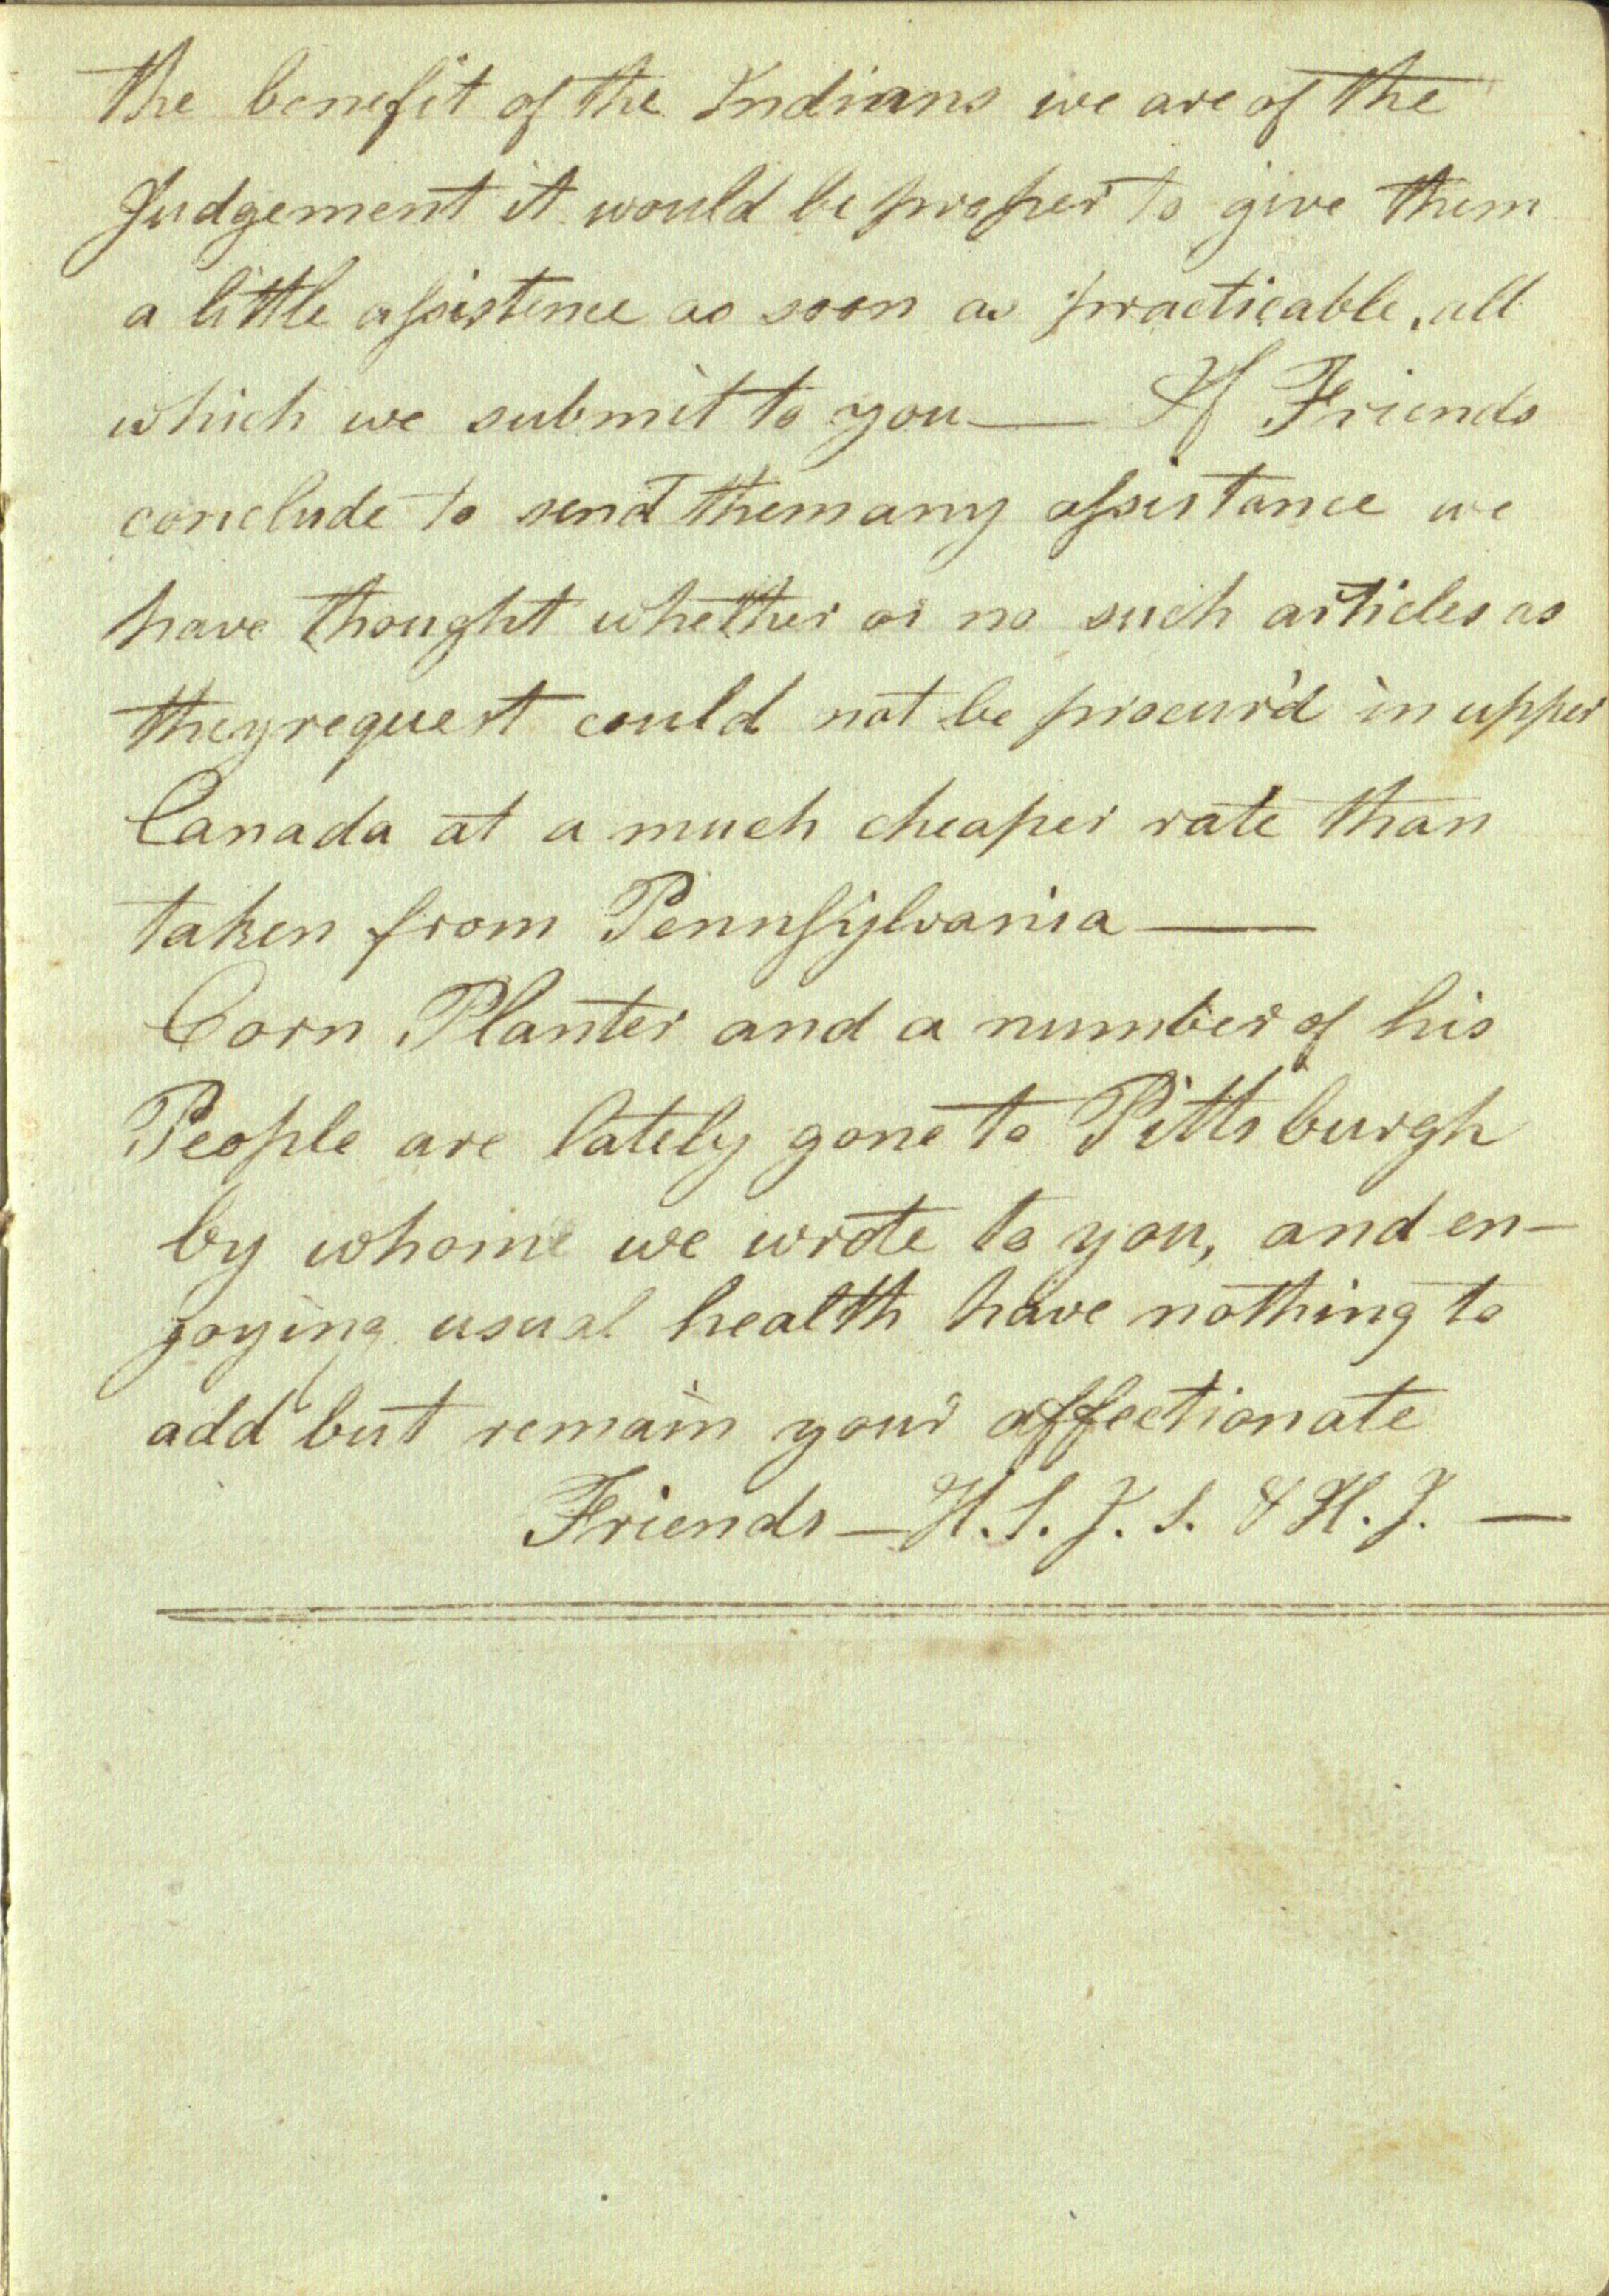 the benefit of the Indians we are of the
Judgement it would be proper to give them
a little assistence as soon as practicable, all
which we submit to you — If Friends
conclude to send them any assistance we
have thought whether or no such articles as
they request could not be procur'd in upper
Canada at a much cheaper rate than
taken from Pennsylvania —
Corn Planter and a number of his
People are lately gone to Pittsburgh
by whome we wrote to you, and en-
joying usual health have nothing to
add but remain your affectionate
Friends — H. S. J. S. & H. J. —